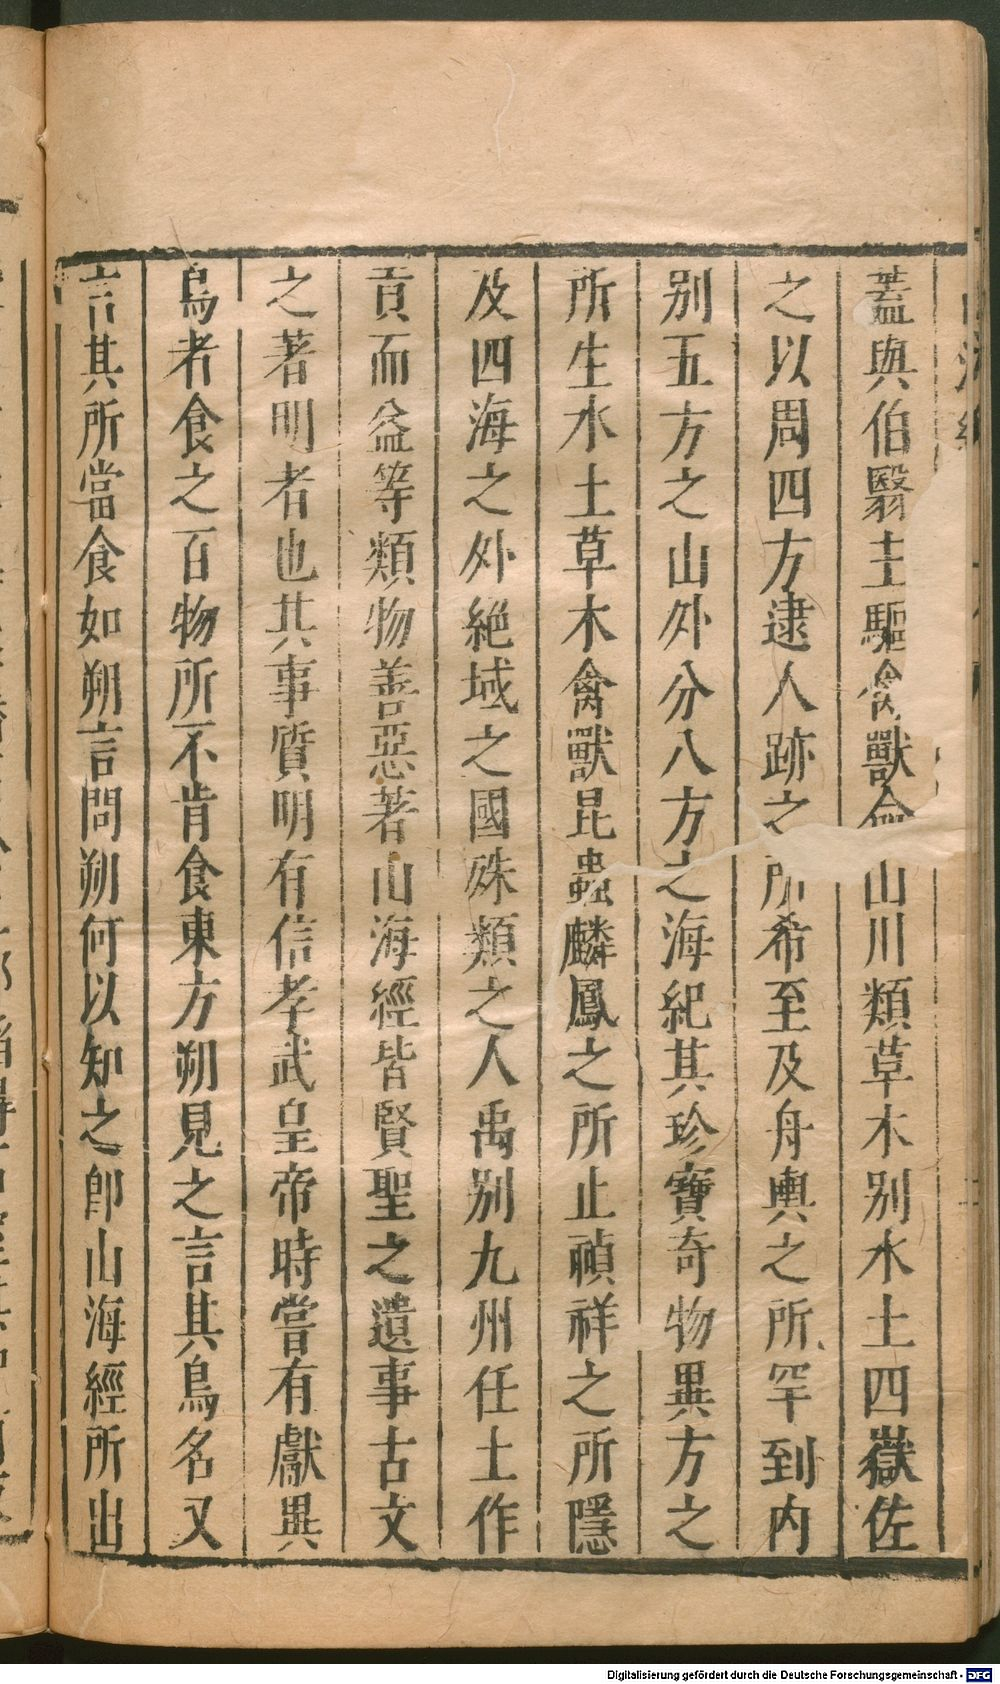 蓋與伯翳主驅禽獸命山川類草木别水土四嶽佐
之以周四方逮人跡之所希至及舟輿之所罕到内
别五方之山外分八方之海紀其珍寶奇物異方之
所生水土草木禽獸昆蟲麟鳳之所止禎祥之所隱
及四海之外絶域之國殊類之人禹别九州任土作
貢而益等類物善惡著山海經皆賢聖之遺事古文
之著明者也其事質明有信孝武皇帝時嘗有獻異
鳥者食之百物所不肯食東方朔見之言其鳥名又
言其所當食如朔言問朔何以知之卽山海經所出
Digitalisierung gefördert durch die Deutsche Forschungsgemeinschaft - DFG